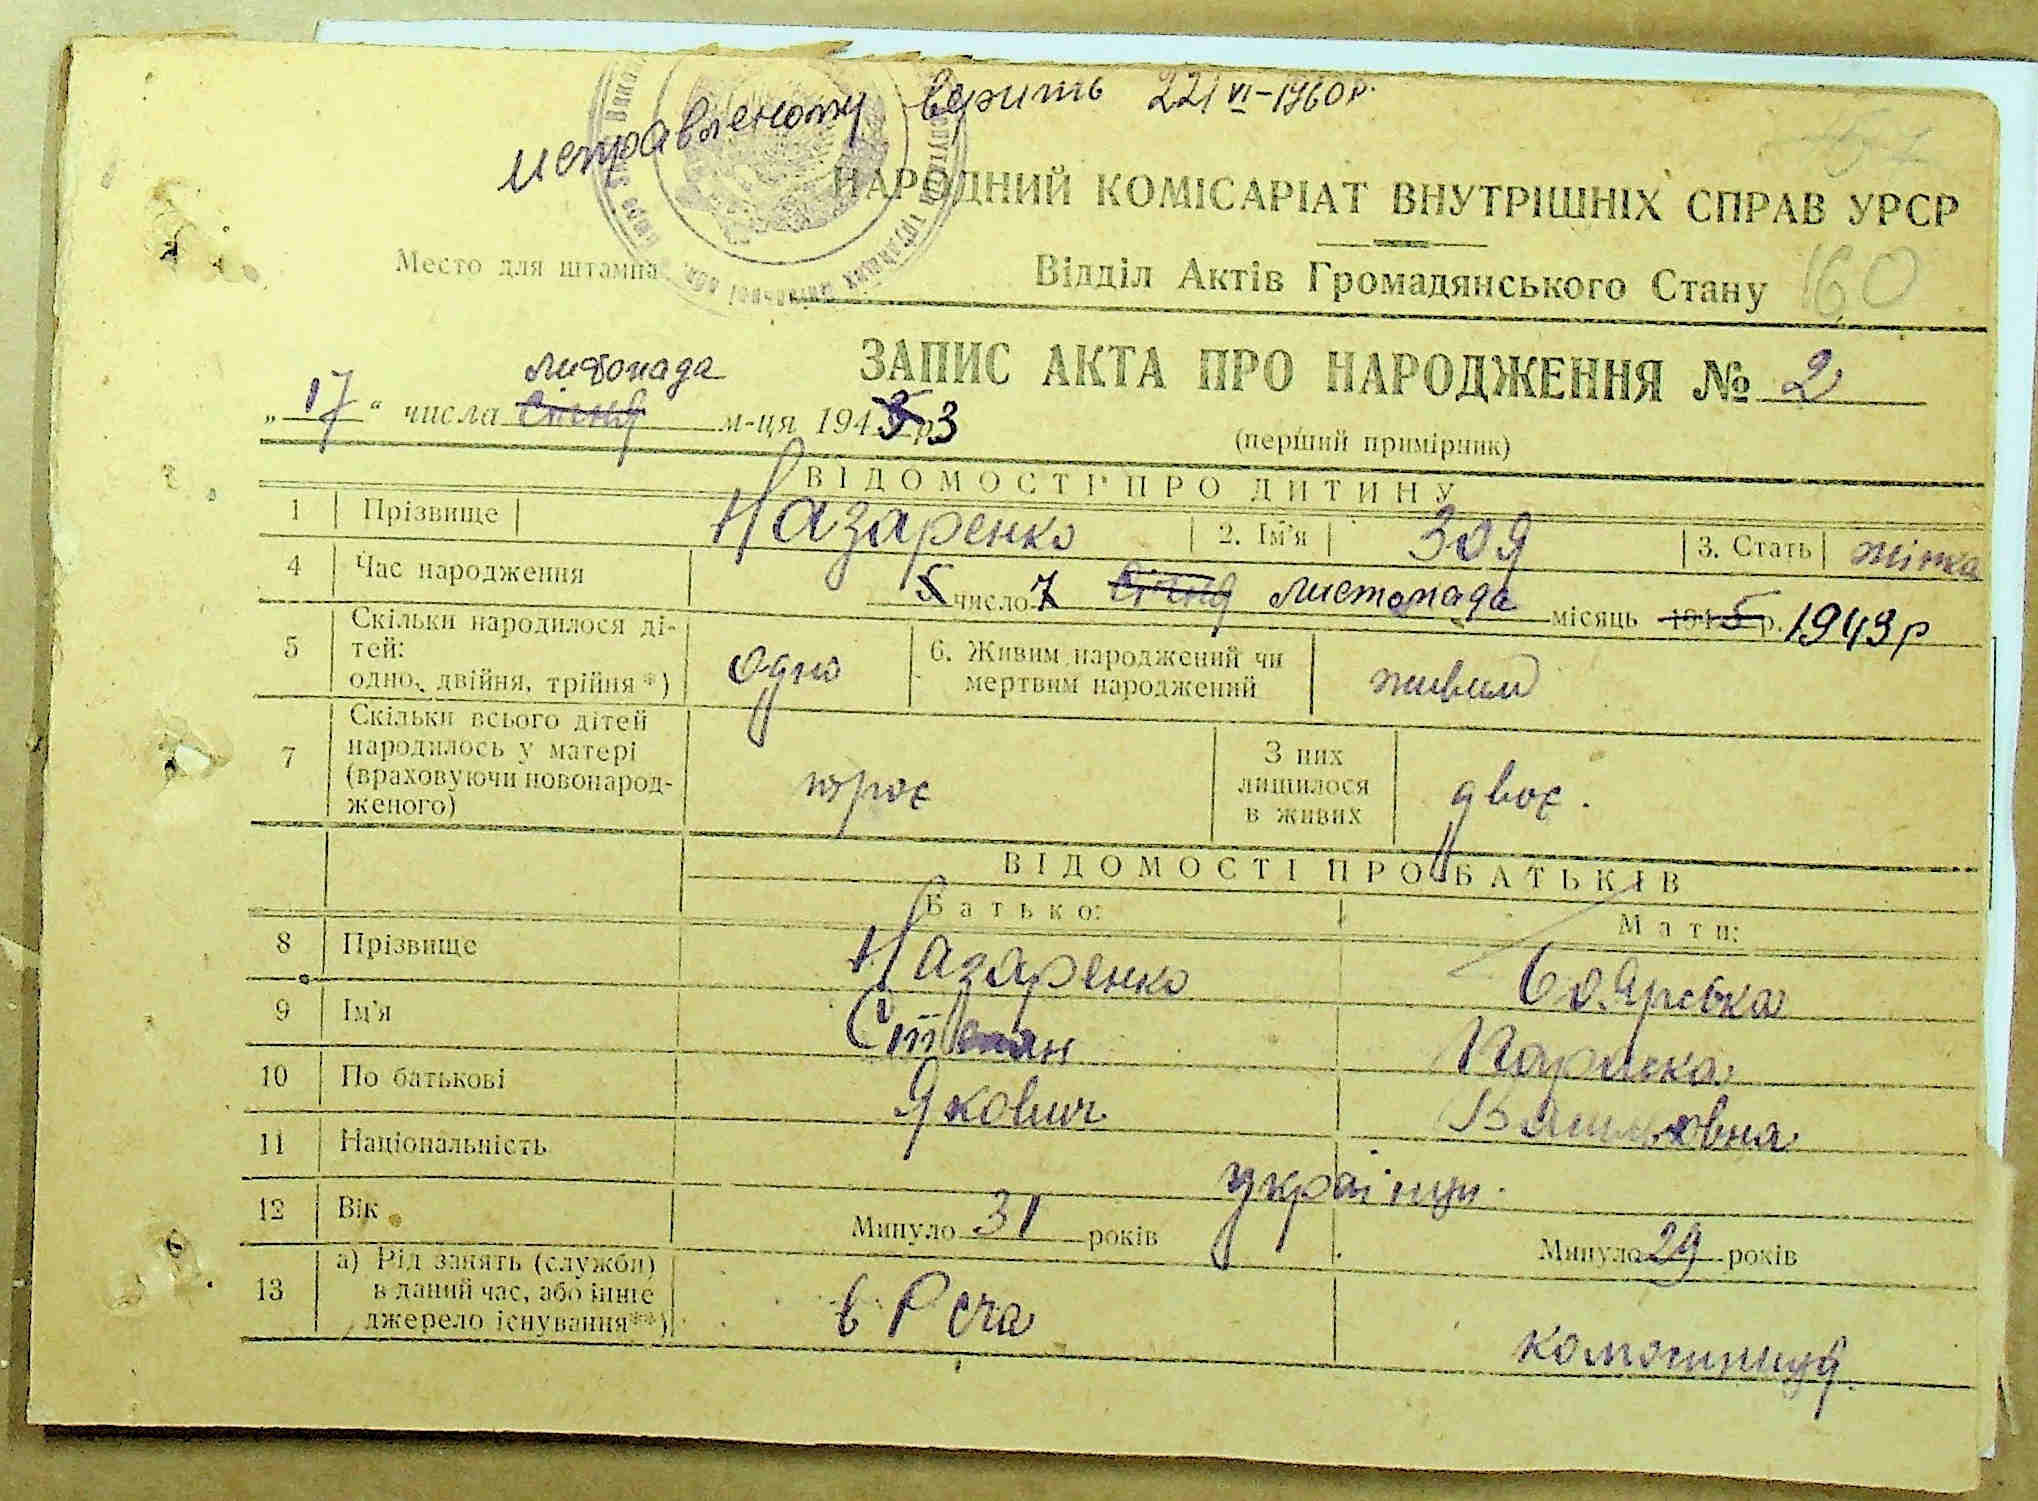 исправленому верить 22/VI-1960р.
57
НАРОДНИЙ КОМІСАРІАТ ВНУТРІШНІХ СПРАВ УРСР
Место для штампа
Відділ Актів Громадянського Стану 160
ЗАПИС АКТА ПРО НАРОДЖЕННЯ № 2
листопада
„17“ числа січня м-ця 1945 р. 3
(перший примірник)
ВІДОМОСТІ ПРО ДИТИНУ
1 Прізвище Назаренко 2. Ім'я Зоя 3. Стать жінка
4 Час народження 5 число 7 січня листопада місяць 1945 р. 1943 р
5 Скільки народилося ді-
тей:
одно, двійня, трійня *) одно 6. Живим народжений чи
мертвим народжений живим
7 Скільки всього дітей
народилось у матері
(враховуючи новонарод-
женого) троє З них
лишилося
в живих двоє.
ВІДОМОСТІ ПРО БАТЬКІВ
Батько: Мати:
8 Прізвище Назаренко Боярська
9 Ім'я Степан Параска
10 По батькові Якович Васильовна
11 Національність українці.
12 Вік Минуло 31 років Минуло 29 років
13 а) Рід занять (служби)
в даний час, або інше
джерело існування **) в Рсча колгоспниця.